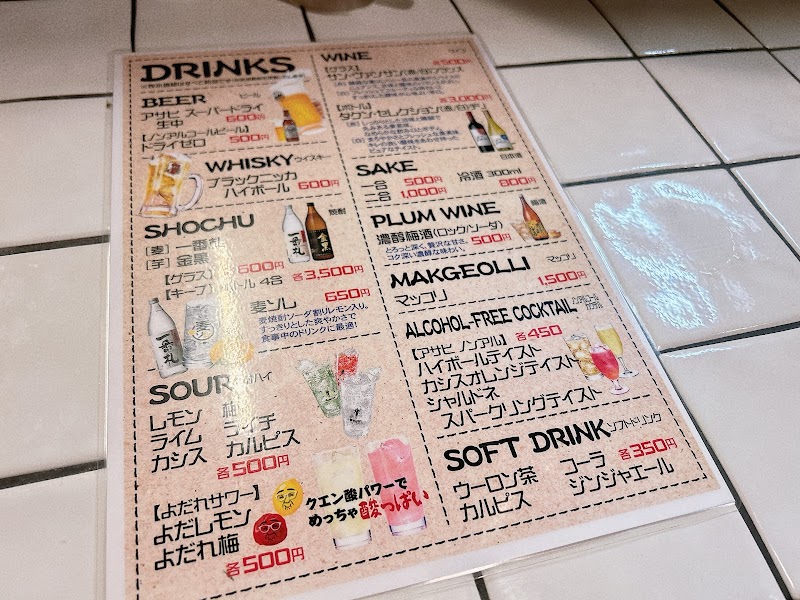 DRINKS
BEER ビール
アサヒ スーパードライ
生中 600円
【ノンアルコールビール】
ドライゼロ 500円
WHISKY ウイスキー
ブラックニッカ
ハイボール 600円
SHOCHU 焼酎
[麦] 一番札
[芋] 金黒
【グラス】 600円
【キープ】ボトル 4合 各3,500円
麦ソレ 650円
麦焼酎ソーダ割りレモン入り。
すっきりとした爽やかさで
食事中のドリンクに最適!
SOUR
レモン 梅
ライム ライチ
カシス カルピス
各500円
【よだれサワー】
よだレモン
よだれ梅
各500円
クエン酸パワーで
めっちゃ酸っぱい
WINE ワイン
【グラス】 各500円
サン・ヴァンサン(赤/白)フランス
【ボトル】 各3,000円
タクン・セレクション(赤/白)チリ
SAKE 日本酒
一合 500円 冷酒 300ml
二合 1,000円 800円
PLUM WINE 梅酒
濃醇梅酒(ロック/ソーダ)
500円
とろっと深く、贅沢な甘さ。
コク深い濃醇な味わい。
MAKGEOLLI マッコリ
マッコリ 1,500円
ALCOHOL-FREE COCKTAIL
【アサヒ ノンアル】 各450
ハイボールテイスト
カシスオレンジテイスト
シャルドネ
スパークリングテイスト
SOFT DRINK ソフトドリンク
各350円
ウーロン茶 コーラ
カルピス ジンジャエール